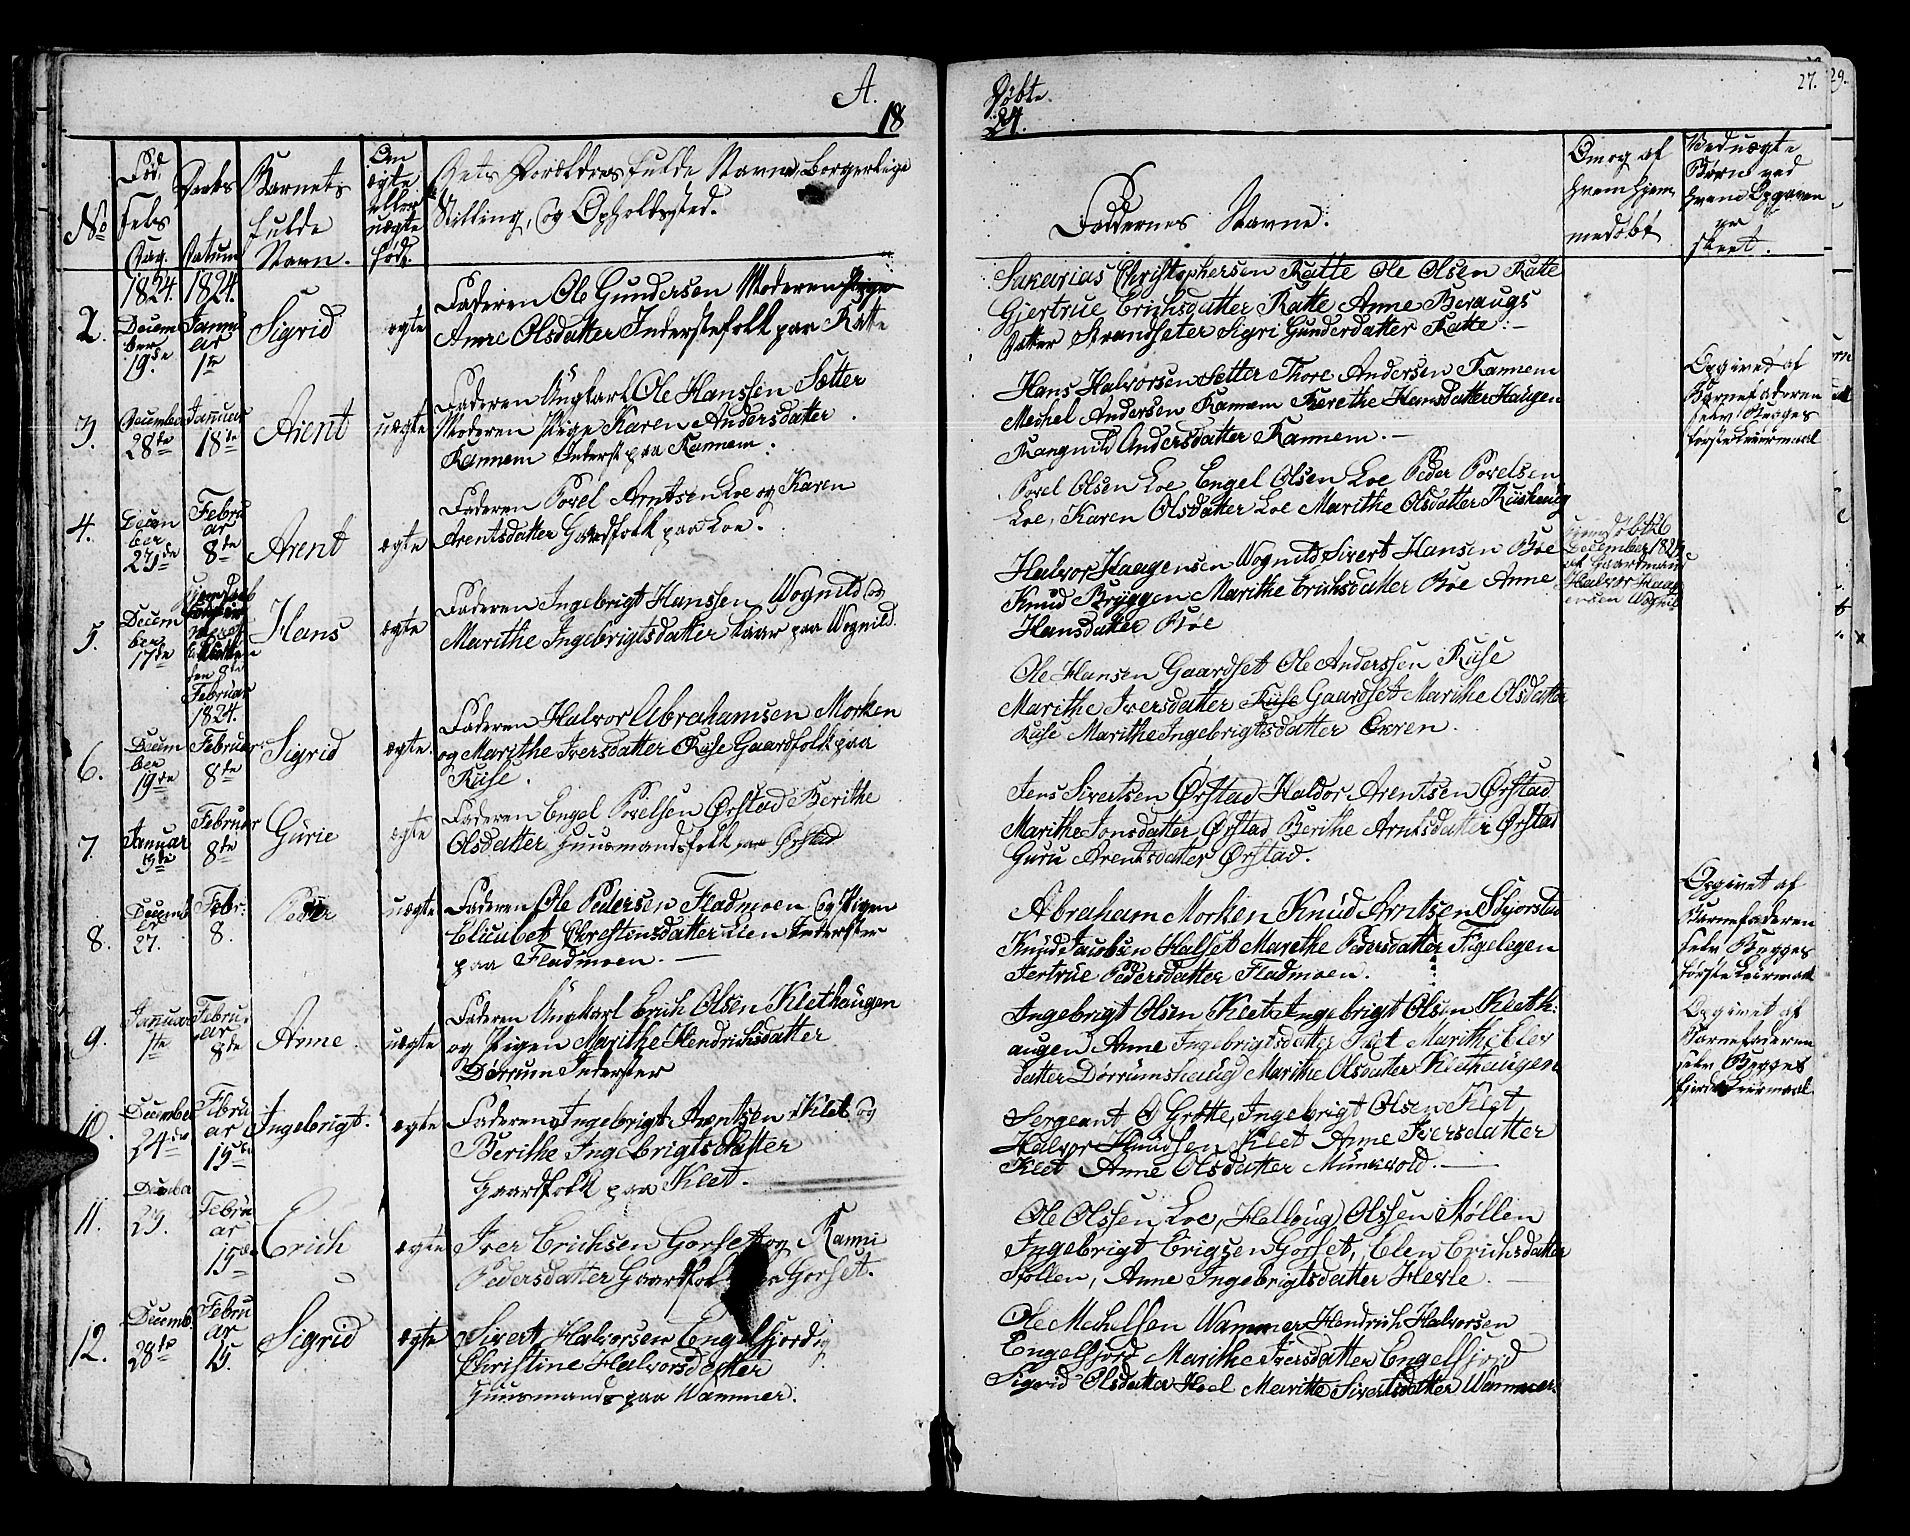 A.
18
Døbte.
24.
27.
29.
No
Fød
sels
Dag.
Daabs
Datum
Barnets
fulde
Navn.
Om
ægte
eller
uægte
fød.
Dets Forældres fulde Navne, borgerlige
Stilling, og Opholdssted.
Faddernes Navne.
Om og af
hvem hjem
medøbt
Ved uægte
Børn ved
hvem Opgaven
er
skeet.
1824.
1824.
2.
Decem
ber
19de
Janu
ar
1te
Sigrid
ægte
Faderen Ole Gundersen Moderen
Anne Olsdatter Inderstefolk paa Ratte
Sakarias Christophersen Ratte Ole Olsen Ratte
Gjertrue Erichsdatter Ratte Anne Beraugs
datter Strandseter Sigri Gundersdatter Ratte.
3.
December
28de
Januar
18de
Arent
uægte
Faderen Ungkarl Ole Hanssen Sætter
Moderen Pige Karen Andersdatter
Rannem Inderst paa Rannem.
Hans Halvorsen Setter Thore Andersen Rannem
Mechel Andersen Rannem Berethe Hansdatter Haugen
Rangnild Andersdatter Rannem.
Opgived af
Barnefaderen
selv Beges
første Leiermaal
4.
Decem
ber
29de
Febru
ar
8de
Arent
ægte
Faderen Povel Arntsen Loe og Karen
Arentsdatter Gaardfolk paa Loe.
Povel Olsen Loe Engel Olsen Loe Peder Povelsen
Loe, Karen Olsdatter Loe Marithe Olsdatter Riishoug
5.
Decem
ber
17de
Hjemdøbt
den 8de
Februar
1824.
Hans
ægte
Faderen Ingebrigt Hanssen Wognild og
Marithe Ingebrigtsdatter Kaar paa Wognild.
Halvor Haagensen Wognild Sivert Hansen Bøe
Knud Bryggen Marithe Erichsdatter Bøe Anne
Hansdatter Bøe
hjemdøbt 26
December 182
af Gaardmand
Halvor Haag
ensen Wognil
6.
Decem
ber
19de
Februar
8de
Sigrid
ægte.
Faderen Halvor Abrahamsen Morken
og Marithe Iversdatter Riise Gaardfolk paa
Riise.
Ole Hansen Gaardset Ole Anderssen Riise
Marithe Iversdatter Riise Gaardset Marithe Olsdatter
Riise Marithe Ingebrigtsdatter Orren.
7.
Januar
19de
Februar
8de
Gurie
ægte
Faderen Engel Povelsen Ørstad Berithe
Olsdatter Huusmandsfolk paa Ørstad
Jens Sivertsen Ørstad Haldor Arentsen Ørstad
Marithe Jonsdatter Ørstad Berithe Arntsdatter Ørstad
Guru Arentsdatter Ørstad.
8.
Decemb
er
27.
Febr:
8.
Peder
uægte
Faderen Ole Pedersen Fladmoen og Pigen
Elisabet Chrestiansdatter Lien Inderster
paa Fladmoen.
Abraham Morken Knud Arntsen Skjorstad
Knud Jacobsen Halset Marethe Pedersdatter Figelegen
Jertrue Pedersdatter Fladmoen.
Opgivet af
Barnefaderen
selv Begges
første Leiermaal
9.
Januar
1te
Febru
ar
8de
Anne
uægte
Faderen Ungkarl Erich Olsen Klethaugen
og Pigen Marithe Hendrichsdatter
Dørrum Inderster
Ingebrigt Olsen Klet Ingebrigt Olsen Kleth:
augen Anne Ingebrigtsdatter Klet Marithe Elev
datter Dørrumshaug Marithe Olsdatter Klethaugen
Opgivet af
Barnefaderen
selv Begges
Leiermaal
10.
December
24de
Febru
ar
15de
Ingebrigt.
ægte
Faderen Ingebrigt Arentsen Klet og
Berithe Ingebrigtsdatter
Gaardfolk paa Klet.
Sergeant O Grøtte, Ingebrigt Olsen Klet
Halvor Knudsen Klet Anne Iversdatter
Klet Anne Olsdatter Munkvold.
11.
December
29.
Febru
ar
15de
Erich
ægte
Iver Erichsen Gorset og Ranni
Pedersdatter Gaardfolk paa Gorset.
Ole Olssen Loe, Helloug Olssen Støllen
Ingebrigt Erigsen Gorset, Elen Erichsdatter
Støllen, Anne Ingebrigtsdatter Hevle
12.
Decemb.
28de
Febru
ar
15.
Sigrid
ægte
Sivert Halvorsen Engelsfjord og
Christine Halvorsdatter
Huusmands paa Wammer.
Ole Mechelsen Wammer Hendrich Halvorsen
Engelsfjord Marithe Iversdatter Engelsfjord
Sigrid Olsdatter Hoel Marithe Sivertsdatter Wammer.